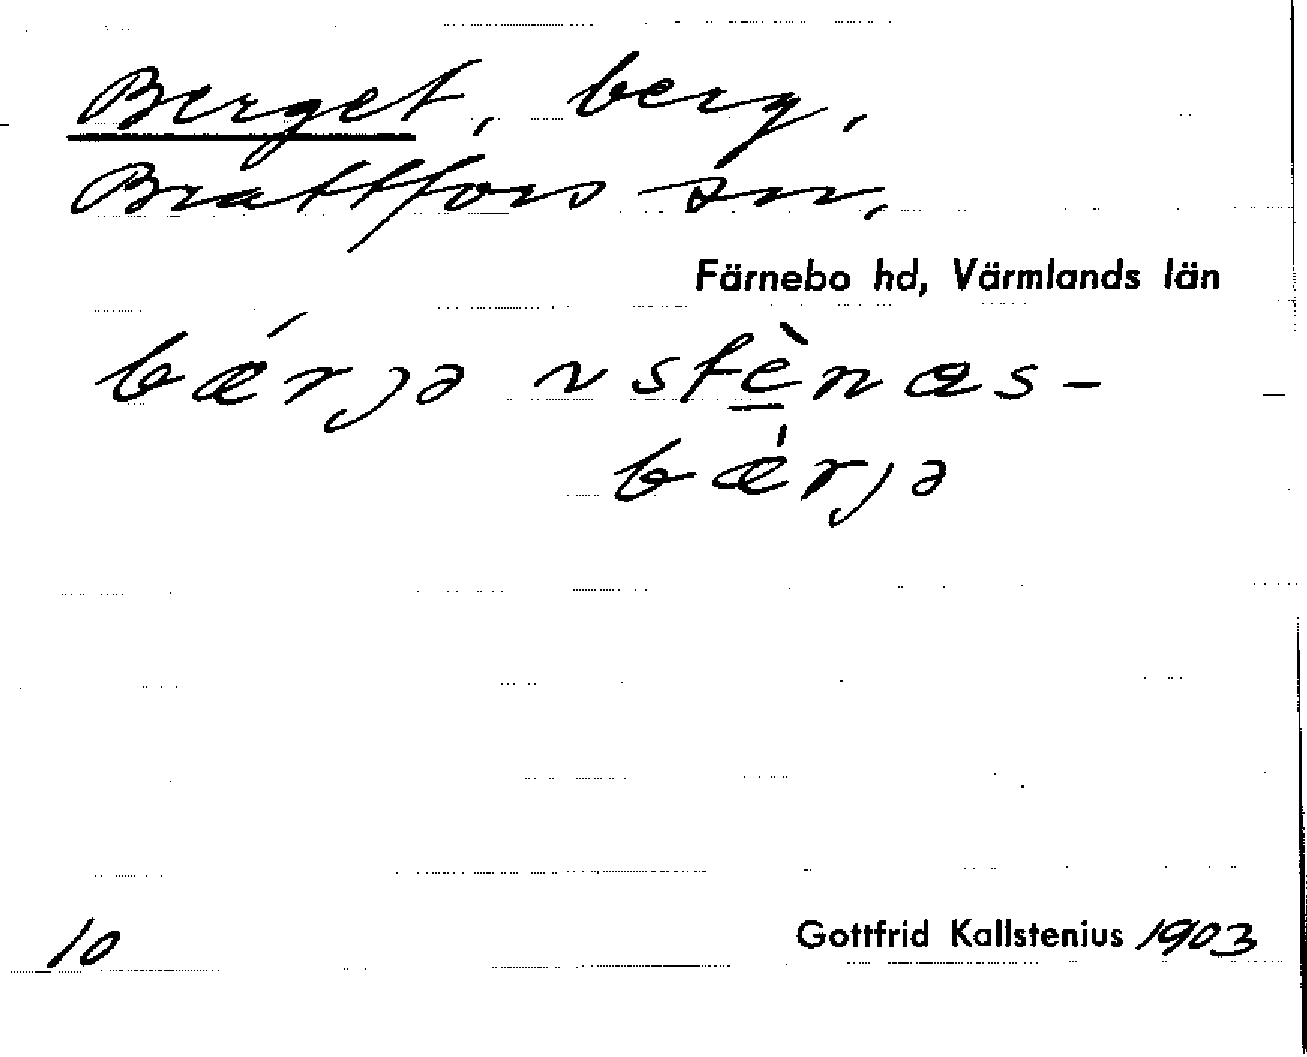 Berget, berg,
Brattfors sn.
Färnebo hd, Värmlands län
bǽrjə ~ stènæs-
bǽrjə
10
Gottfrid Kallstenius 1903